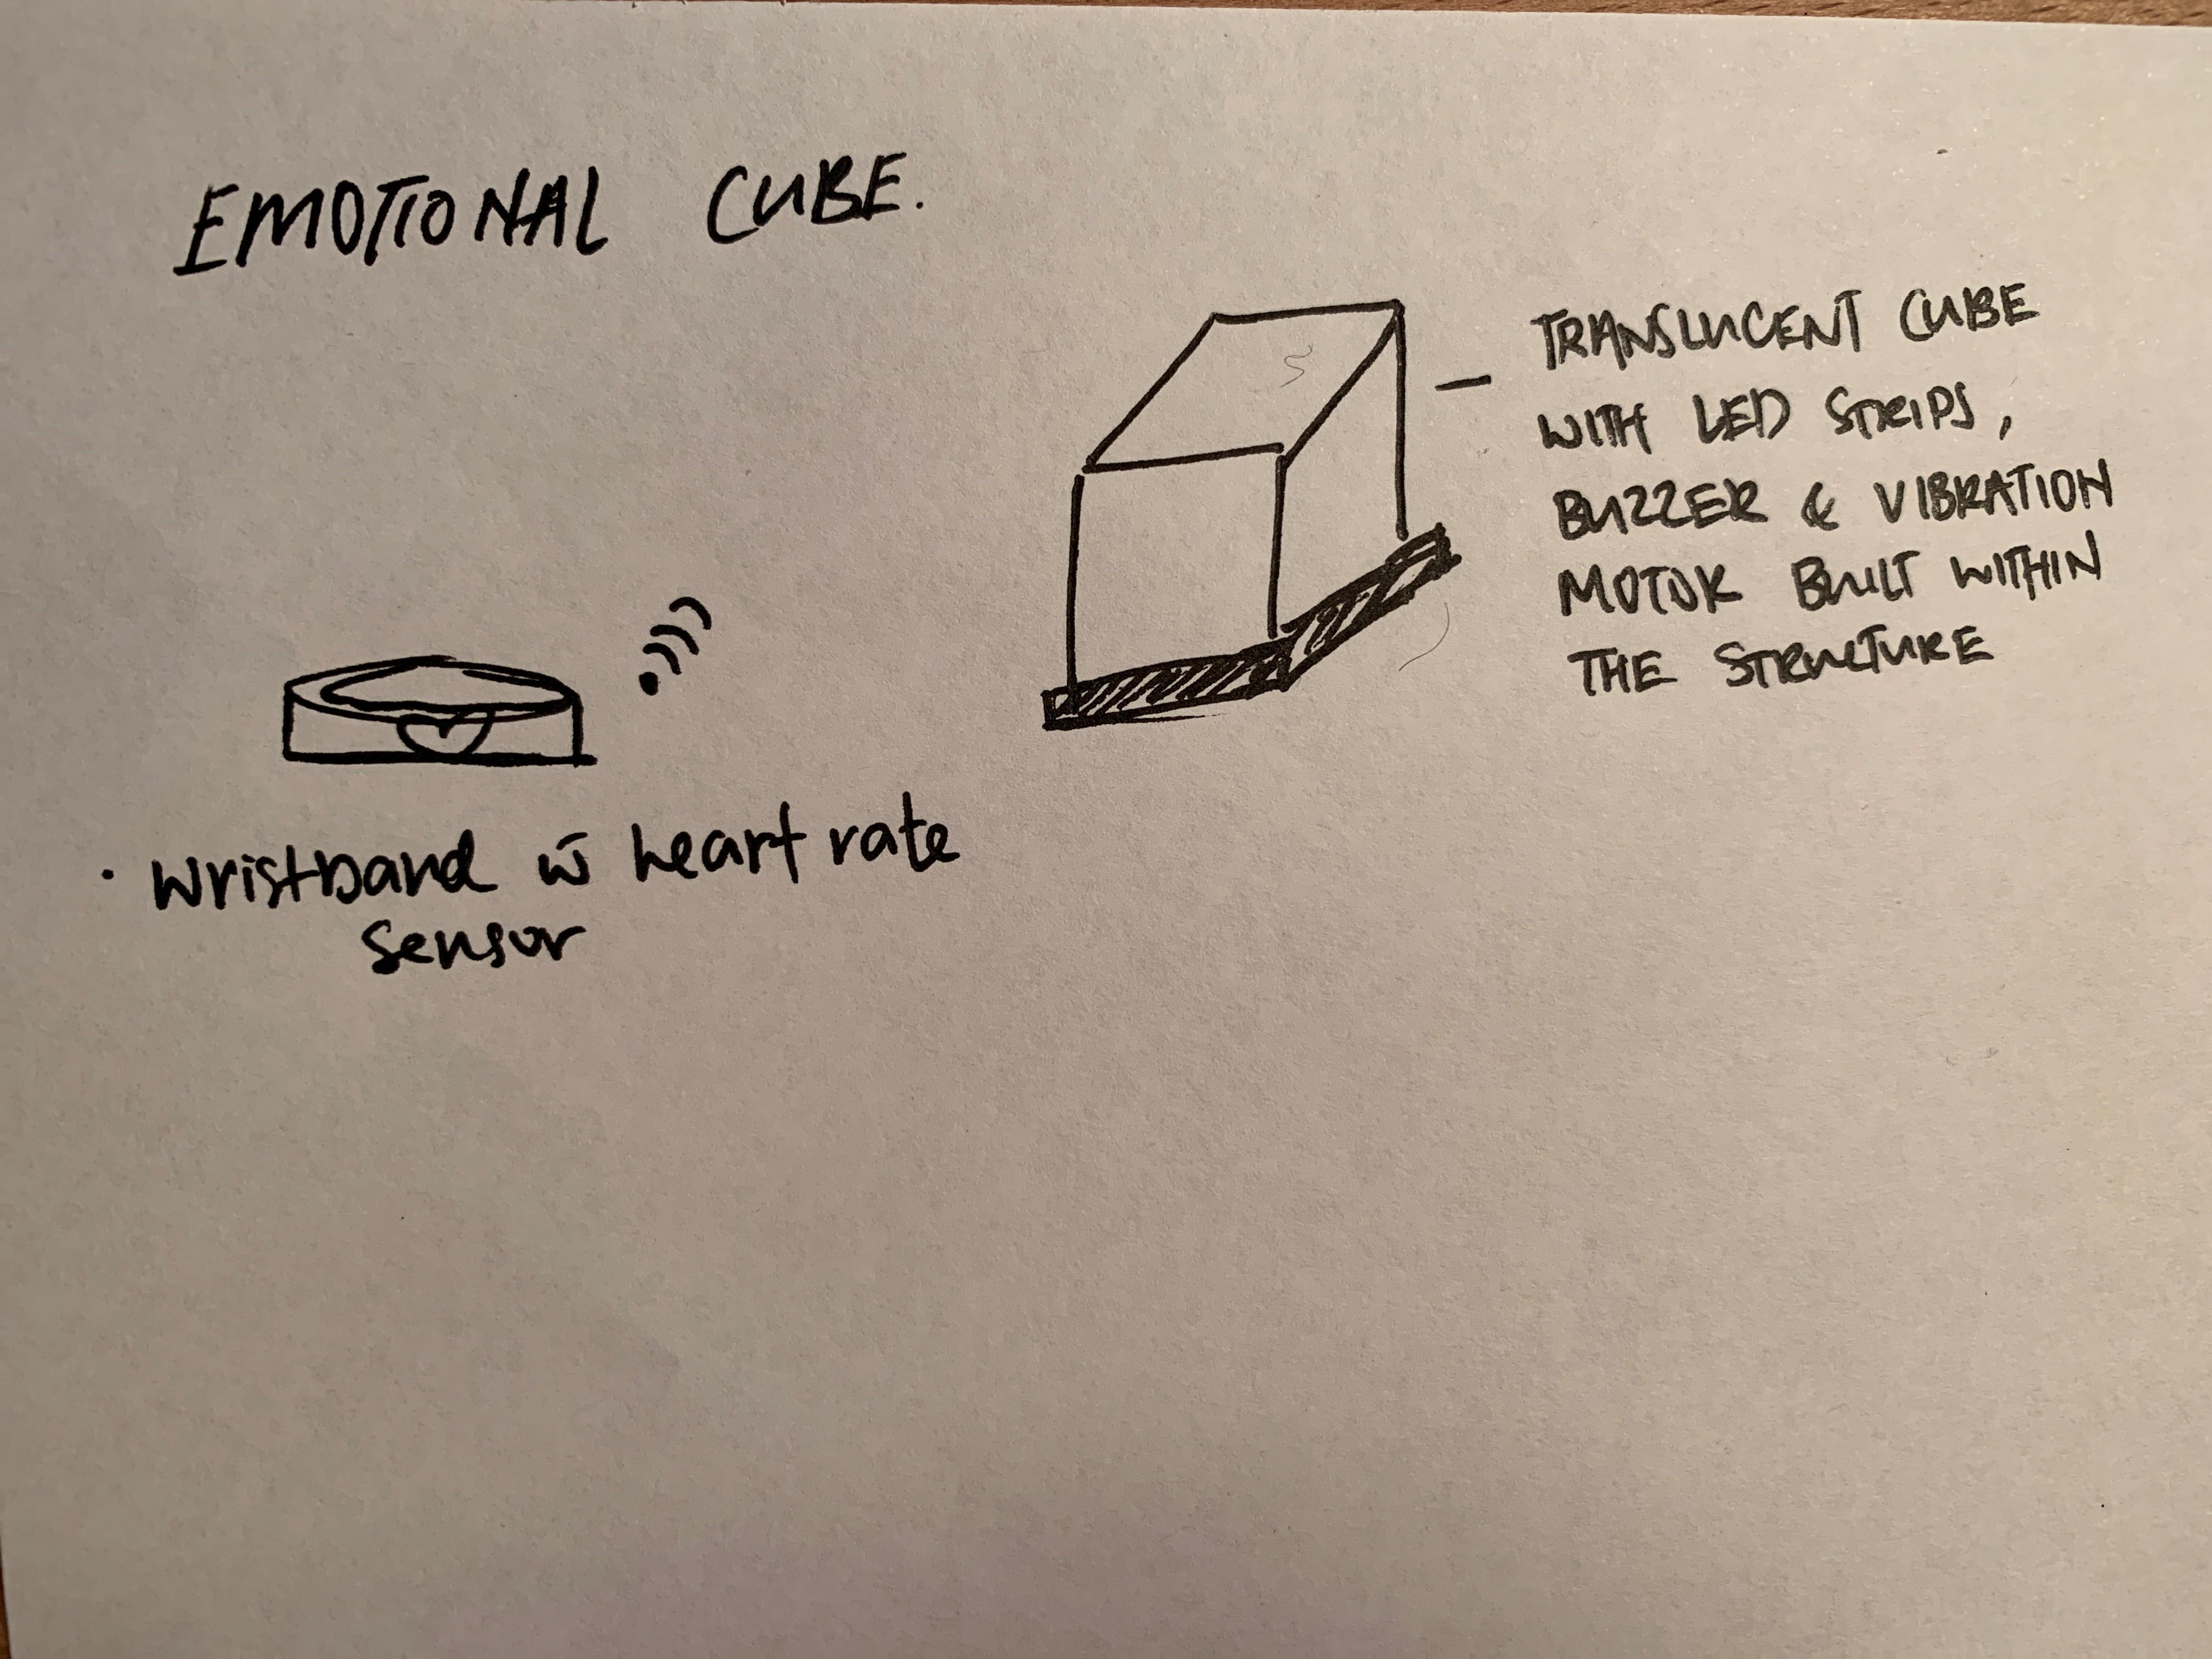 EMOTIONAL CUBE.
TRANSLUCENT CUBE
WITH LED STRIPS,
BUZZER & VIBRATION
MOTOR BUILT WITHIN
THE STRUCTURE
• wristband w̄ heart rate
sensor